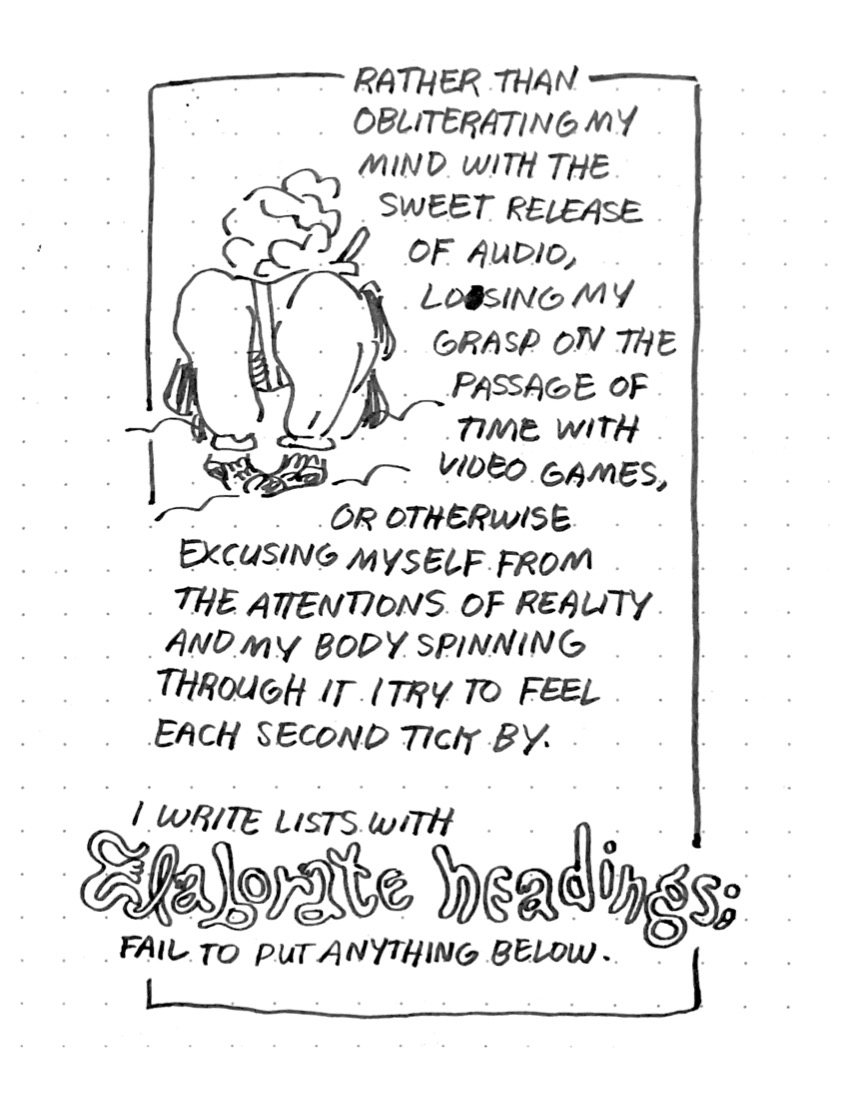 RATHER THAN
OBLITERATING MY
MIND WITH THE
SWEET RELEASE
OF AUDIO,
LOSING MY
GRASP ON THE
PASSAGE OF
TIME WITH
VIDEO GAMES,
OR OTHERWISE
EXCUSING MYSELF FROM
THE ATTENTIONS OF REALITY
AND MY BODY SPINNING
THROUGH IT I TRY TO FEEL
EACH SECOND TICK BY.
I WRITE LISTS WITH
Elaborate headings;
FAIL TO PUT ANYTHING BELOW.